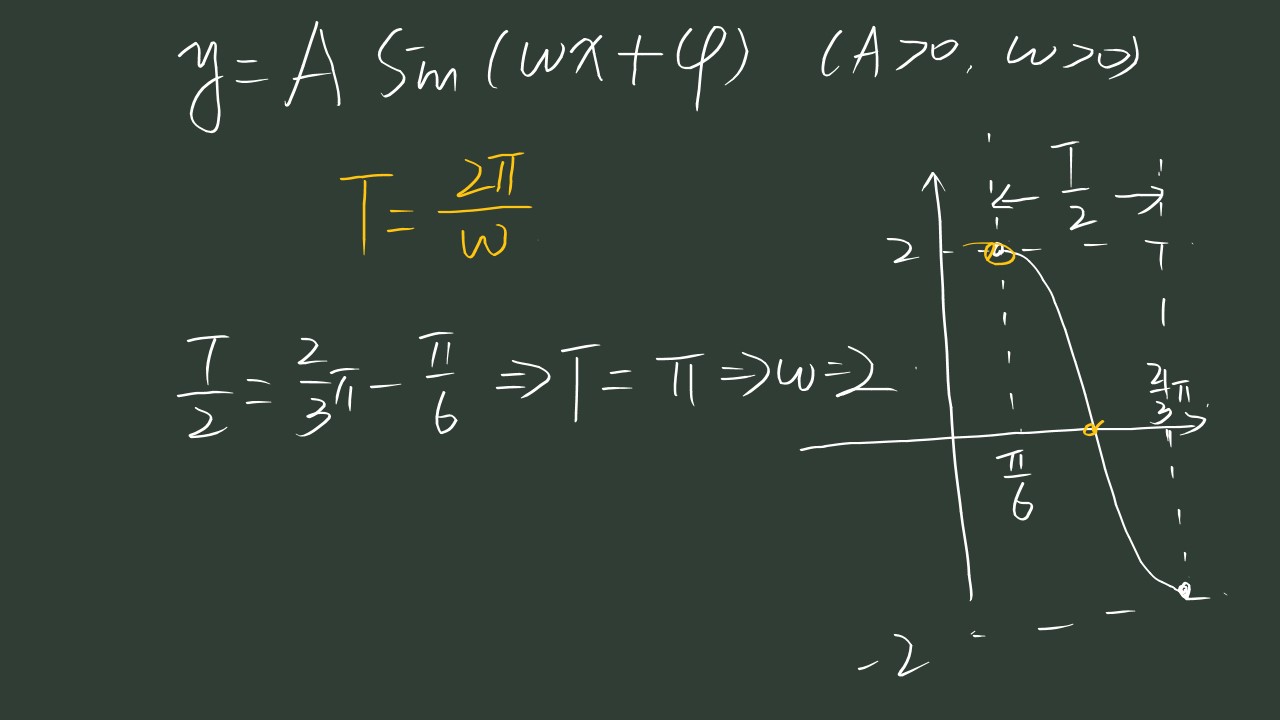 y = A sin (ωx + φ) (A > 0, ω > 0)
T = 2π/ω
T/2
2
T/2 = 2/3 π - π/6 ⇒ T = π ⇒ ω = 2
2/3 π
π/6
-2